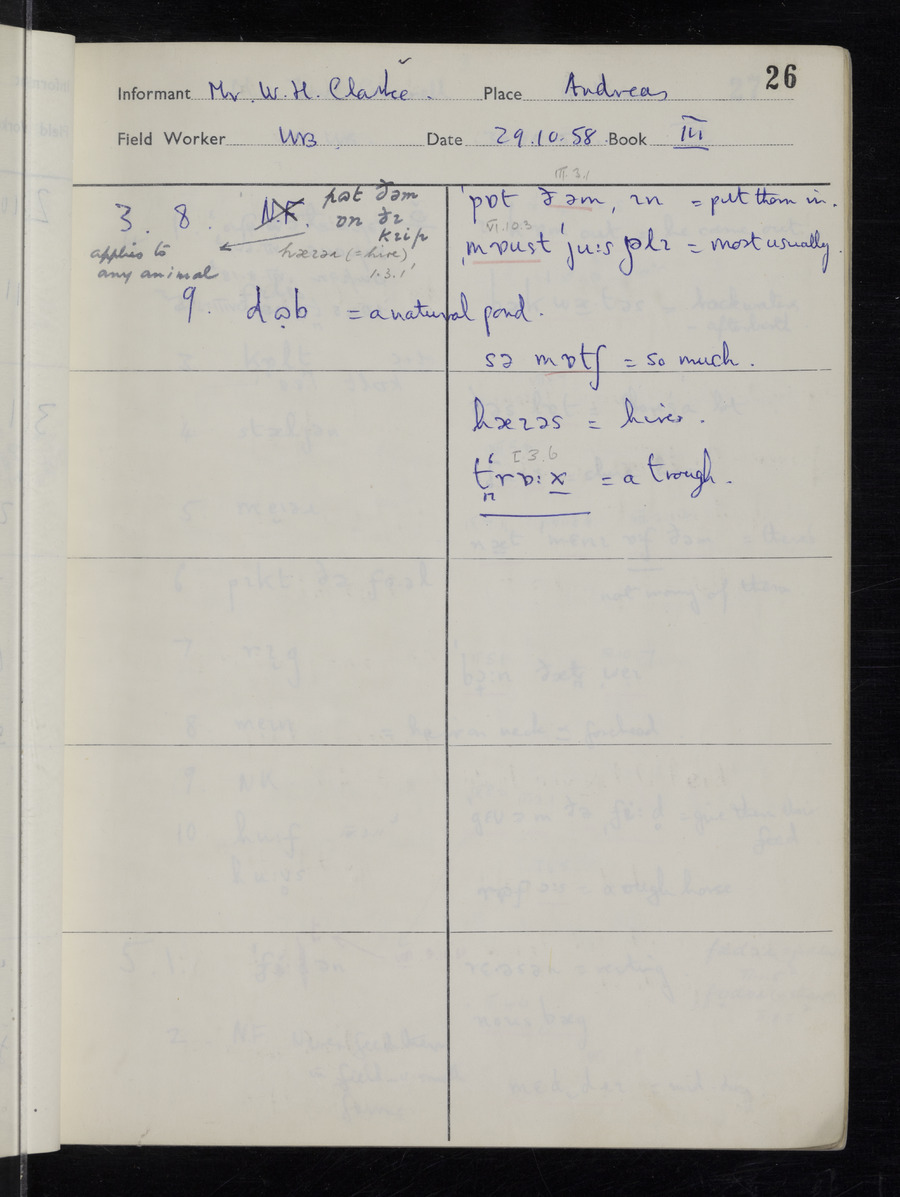 26
Informant Mr. W. H. Clarke. Place Andreas
Field Worker WB. Date 29.10.58 Book III
3. 8. N.K. pɵt ðəm
ɒn ðɪ
krɪp
applies to
any animal
hæɪəɹ (= hire)
1.3.1
9. dɵb = a natural pond.
III.3.1
ˈpɒt ðəm, ɪn = put them in.
VI.10.3
ˌmɒust ˈjuːʒəlɪ = most usually.
sə mɒtʃ = so much.
hæɪəs = hires.
I 3.6
trɒːx = a trough.